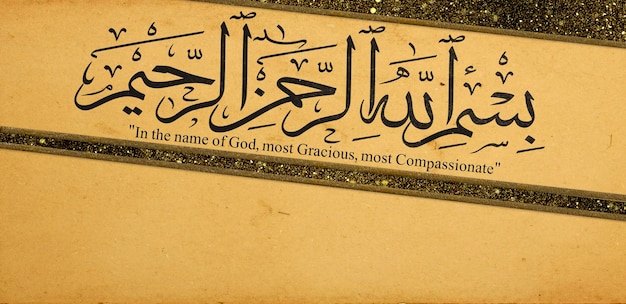 بِسْمِ ٱللَّهِ ٱلرَّحْمَٰنِ ٱلرَّحِيمِ
"In the name of God, most Gracious, most Compassionate"